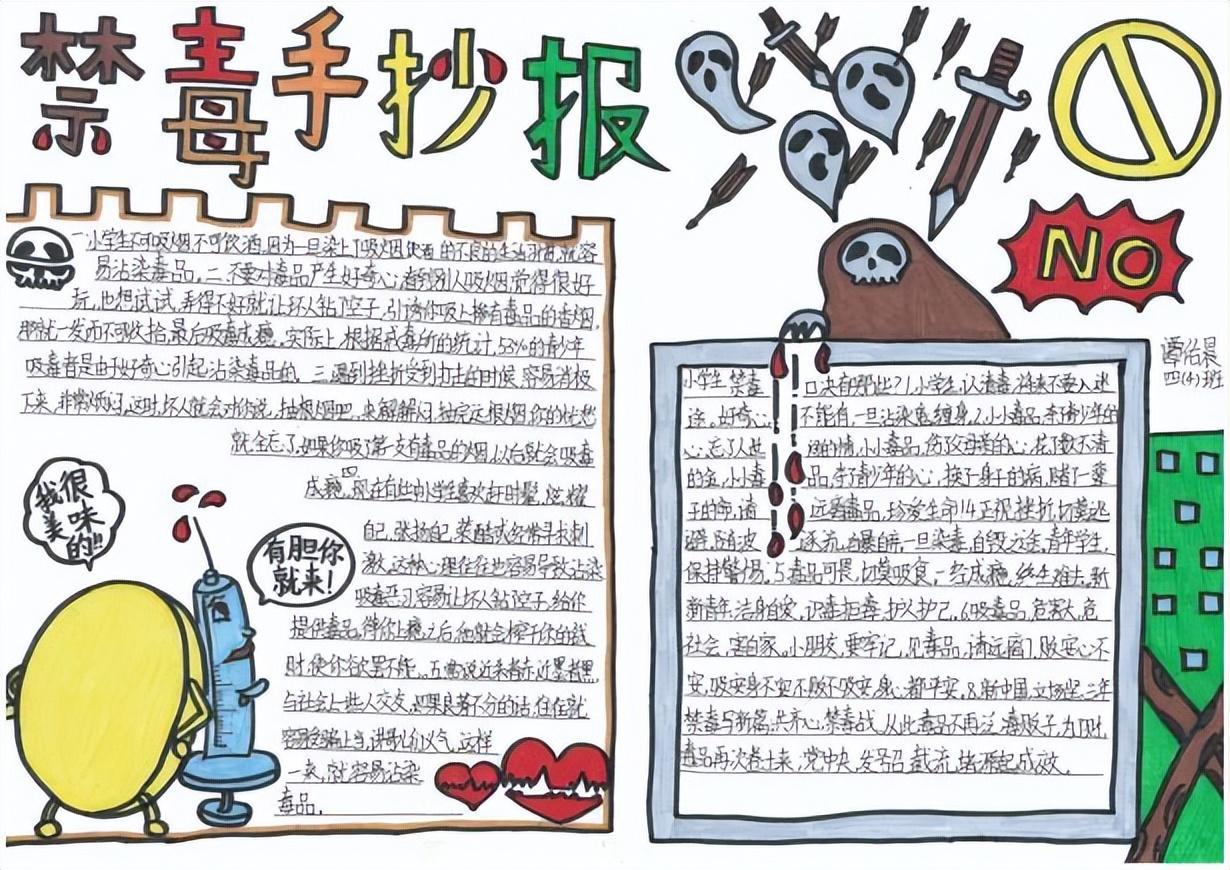 禁毒手抄报
一小学生不可吸烟不可饮酒,因为一旦染上了吸烟饮酒的不良的生活习惯,就容
易沾染毒品。二、不要对毒品产生好奇心,看到别人吸烟,觉得很好
玩,也想试试,弄得不好就让坏人钻了空子,引诱你吸上掺有毒品的香烟,
那就一发而不可收拾,最后吸毒成瘾。实际上,根据戒毒所的统计,53%的青少年
吸毒者是由于好奇心引起沾染毒品的。三、遇到挫折受到打击的时候,容易消极
下来,非常烦闷,这时,坏人就会对你说,抽根烟吧,来解解闷,抽完这根烟,你的忧愁
就全忘了,如果你吸了第一支有毒品的烟,以后就会吸毒
成瘾。四现在有些中小学生喜欢赶时髦,炫耀
自己,张扬自己,装酷或经常寻找刺
激,这种心理往往也容易导致沾染
吸毒恶习,容易让坏人钻了空子,给你
提供毒品,待你上瘾之后,他就会榨干你的钱
财,使你欲罢不能。五、常说近朱者赤,近墨者黑,
与社会上些人交友,如果良莠不分的话,往往就
容易受骗上当,讲哥儿们义气,这样
一来,就容易沾染
毒品。
我很美味的!!
有胆你就来!
NO
四(4)班
小学生禁毒口决有哪些?1.小学生,认清毒,将来不要入迷
途。好奇心,不能有,一旦沾染鬼缠身。2.小小毒品,夺了青少年的
心,忘了人世间的情,小小毒品,伤了父母美的心,花了数不清
的金,小小毒品,夺了青少年的心,换了一身子的病,赌了一辈
子的命,请远离毒品,珍爱生命!4.正视挫折,切莫逃
避,随波逐流,自暴自弃,一旦染毒,自毁前途,青年学生,
保持警惕。5.毒品可畏,切莫吸食,一经成瘾,终生难去,新
新青年,洁身自爱,识毒拒毒,护人护己。6.吸毒品,危害大,危
社会,害自家。小朋友,要牢记,见毒品,请远离。7.贩安心不
安,吸安身不安,不贩不吸安,身心都平安。8.新中国,立场坚,三年
禁毒写新篇,共齐心,禁毒战,从此毒品不再泛,毒贩子,为了财,
毒品再次卷土来,党中央,发号召,截流堵源起成效。